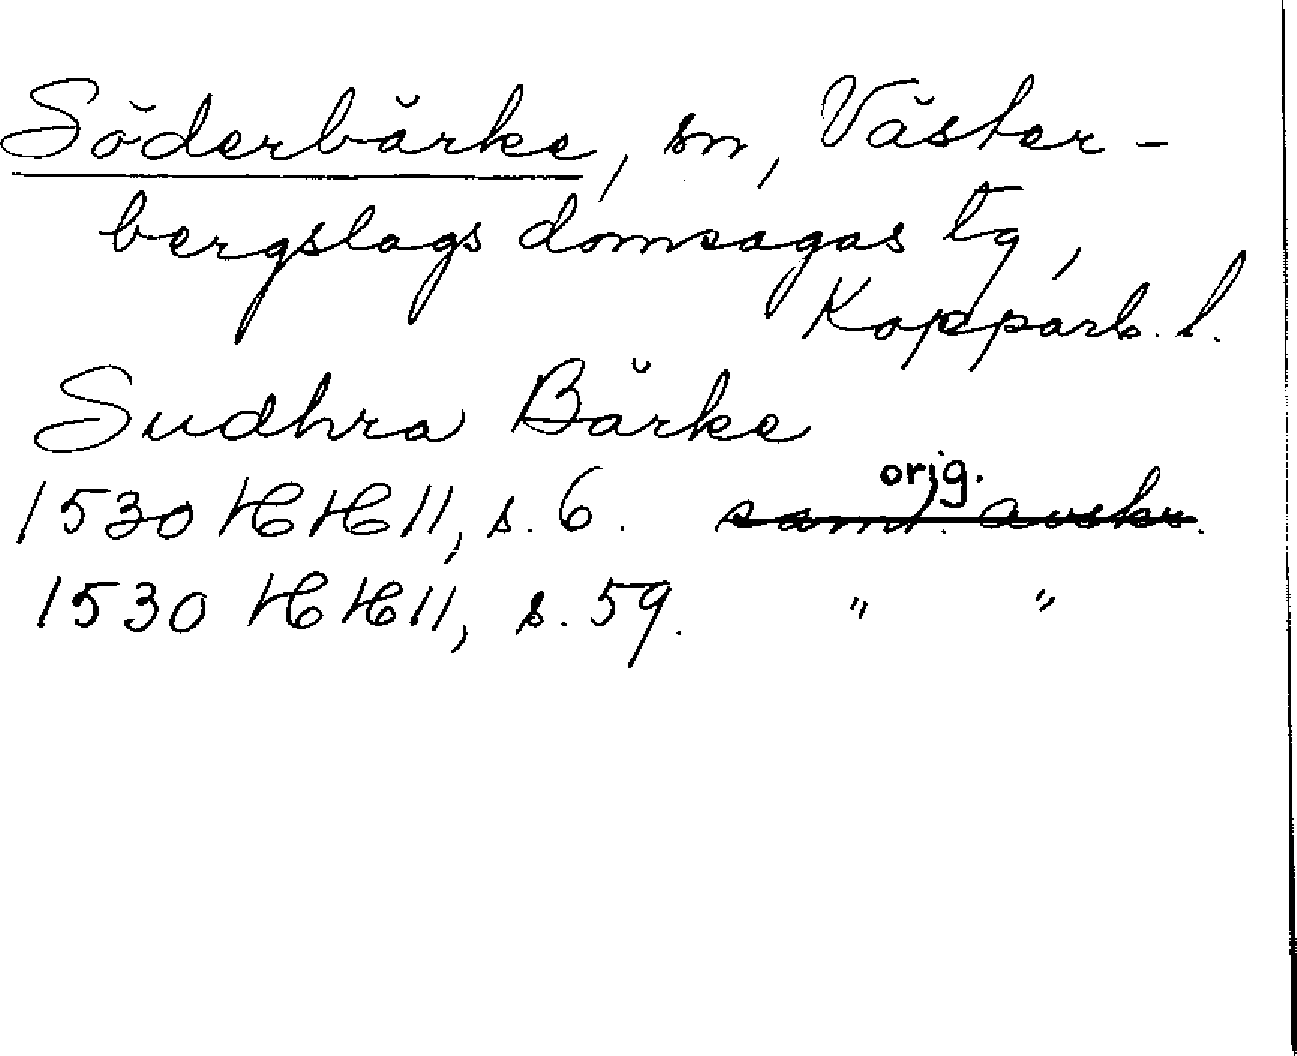 Söderbärke, sn, Väster-
bergslags domsagas tg,
Kopparb. l.
Sudhra Bärke
orig.
1530 HH 11, s. 6. samt. avskr.
1530 HH 11, s. 59. " "